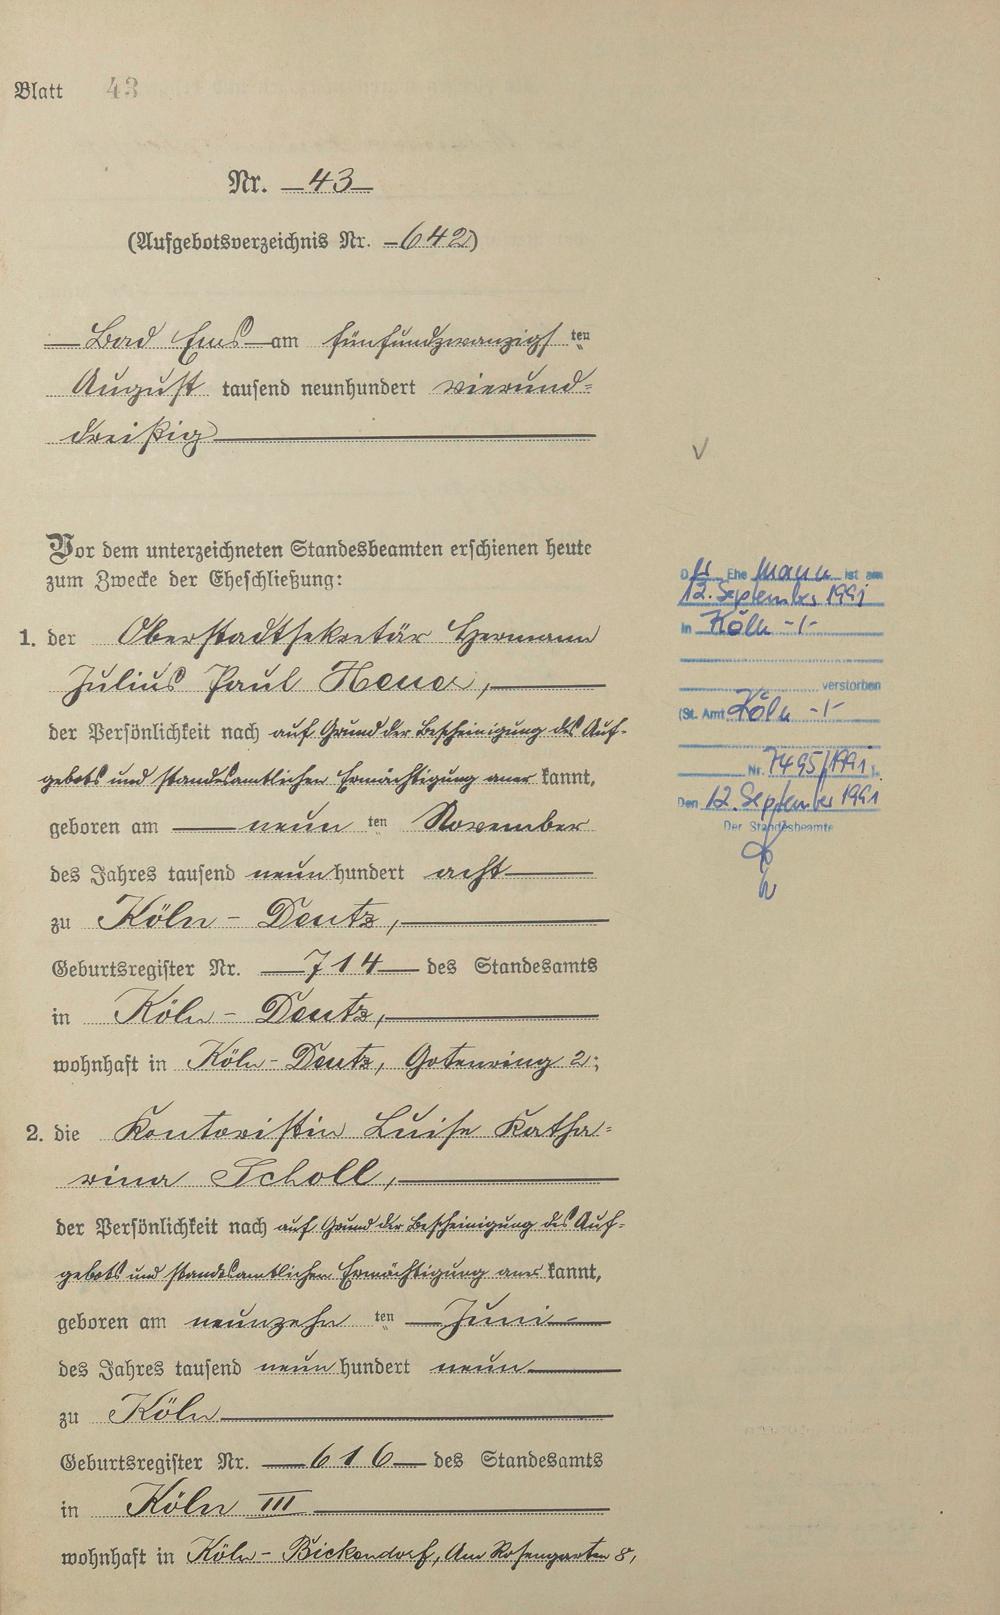 Blatt 43
Nr. 43
(Aufgebotsverzeichnis Nr. 642)
Bad Ems am fünfundzwanzigsten
August tausend neunhundert vierund=
dreißig
Vor dem unterzeichneten Standesbeamten erschienen heute
zum Zwecke der Eheschließung:
1. der Oberstadtsekretär Hermann
Julius Paul
der Persönlichkeit nach auf Grund der Bescheinigung des Auf-
gebots und standesamtlichen Ermächtigung anerkannt,
geboren am neunten November
des Jahres tausend neunhundert acht
zu Köln - Deutz,
Geburtsregister Nr. 714 des Standesamts
in Köln - Deutz,
wohnhaft in Köln - Deutz, Gotenring 2;
2. die Kontoristin Luise Katha=
rina Scholl,
der Persönlichkeit nach auf Grund der Bescheinigung des Auf=
gebots und standesamtlichen Ermächtigung anerkannt,
geboren am neunzehnten Juni
des Jahres tausend neunhundert neun
zu Köln
Geburtsregister Nr. 616 des Standesamts
in Köln III
wohnhaft in Köln - Bickendorf, Am Rosengarten 8,
Der Ehemann ist am
12. September 1991
in Köln -1-
verstorben
(St. Amt Köln -1-
Nr. 7495/1991).
Den 12. September 1991
Der Standesbeamte